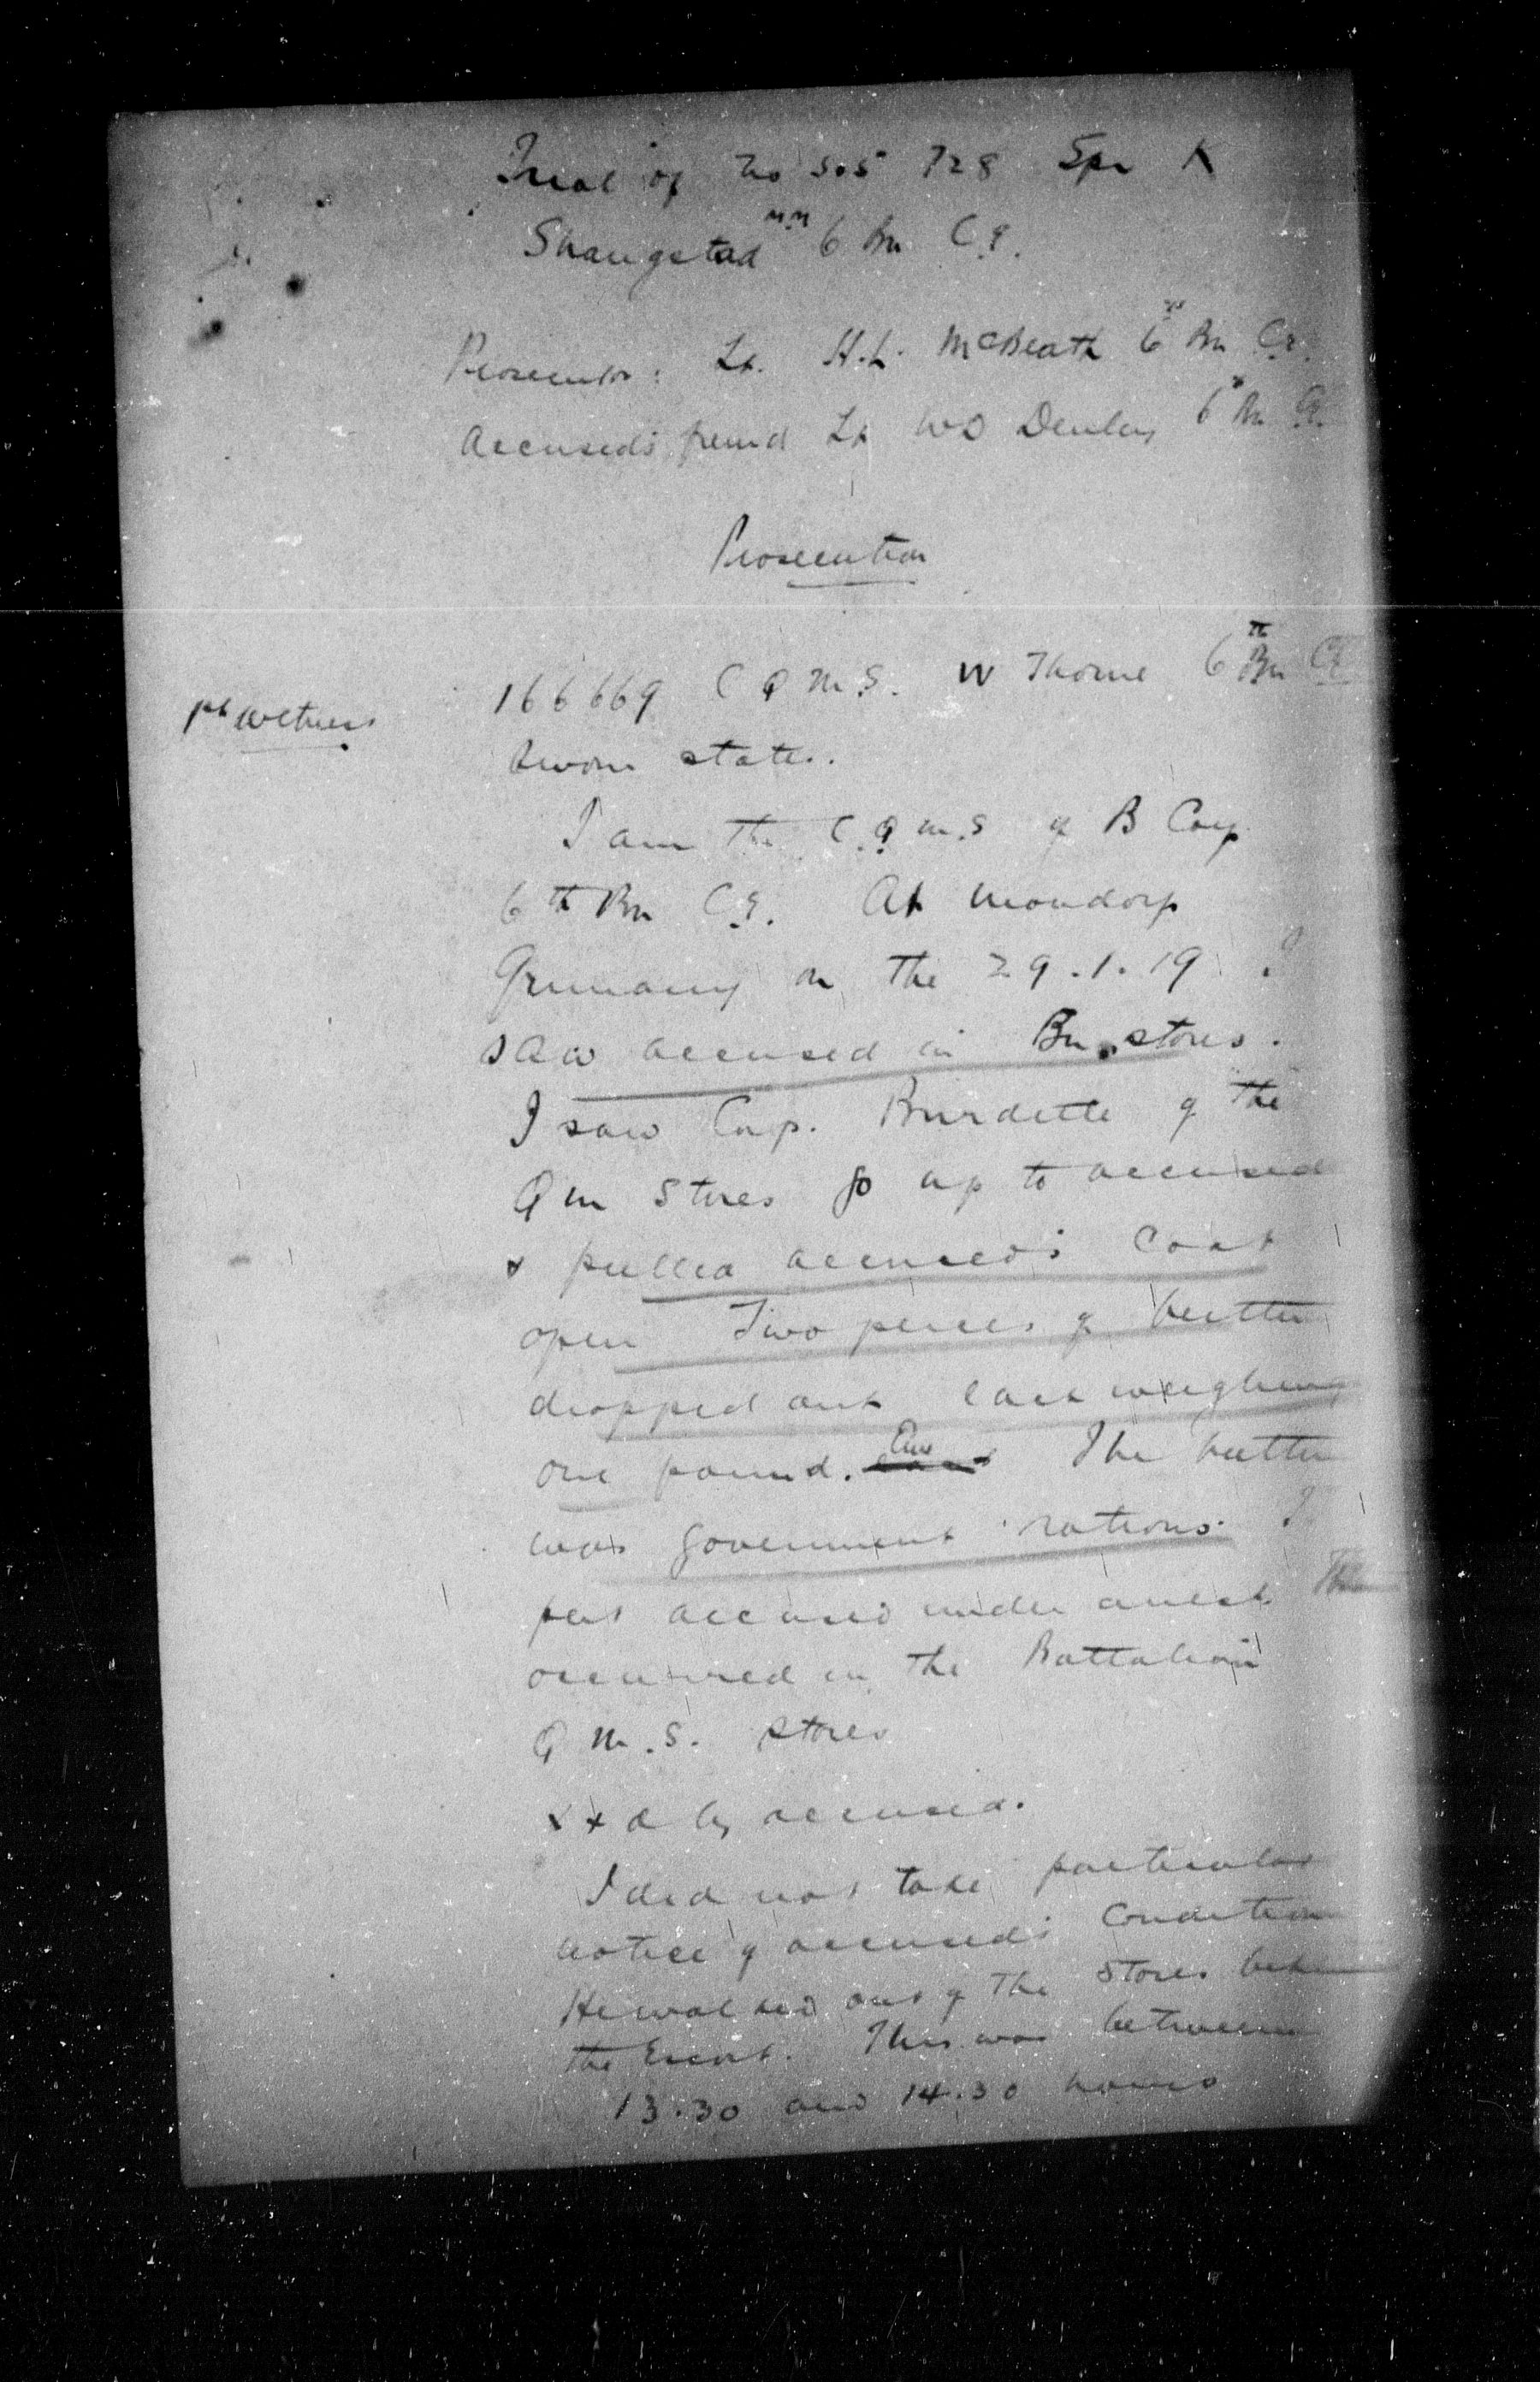 Trial of No 505 728 Spr K
Skaugstad M.M 6 Bn C.E.
Prosecutor: Lt. H.L. McBeath 6th Bn C.E.
Accused's friend Lt W D 6th Bn C.E.
Prosecution
1st witness
166669 C Q M.S. W Thorne 6th Bn C.E.
sworn states.
I am the C.Q.M.S of B Coy
6th Bn C.E. At Mondorf
Germany on the 29.1.19 I
saw accused in Bn. stores.
I saw Corp. Burdette of the
Q M Stores go up to accused
& pulled accused's coat
open Two pieces of butter
dropped out each weighing
one pound. The butter
was Government rations. I
put accused under arrest This
occurred in the Battalion
Q M.S. stores
x x d by accused.
I did not take particular
notice of accused's condition
He walked out of the stores between
the Escort. This was between
13.30 and 14.30 hours